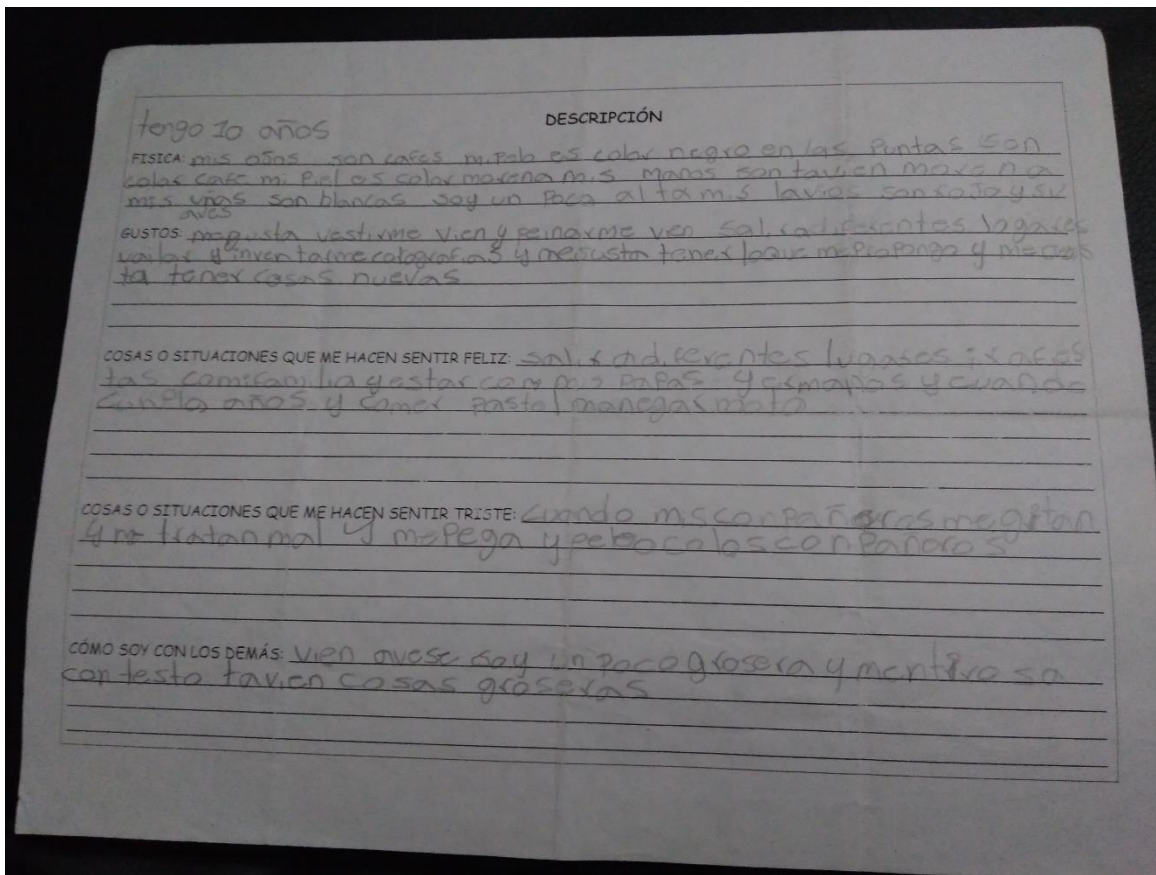 DESCRIPCIÓN
tengo 10 años
FISICA: mis ojos son cafes mi Pelo es color negro en las Puntas son
color cafe mi Piel es color morena mis manos son tavien morena
mis uñas son blancas soy un Poco alta mis lavios son rojo y su
aves
GUSTOS: megusta vestirme vien y peinarme ven salir a diferentes logares
vailar y inventarme cotografias y megusta tener loque mePropongo y megus
ta tener cosas nuevas
COSAS O SITUACIONES QUE ME HACEN SENTIR FELIZ: salir a diferentes lugares ir a fies
tas comifamilia y estar com mis PaPas y ermanos y cuando
cunPlo años y comer Pastel manegar moto
COSAS O SITUACIONES QUE ME HACEN SENTIR TRISTE: cuando mis conpañeras me gritan
y me tratan mal y mePega y peleo co los conpañeros
CÓMO SOY CON LOS DEMÁS: vien avese soy un Poco grosera y mentirosa
contesto tavien cosas groseras